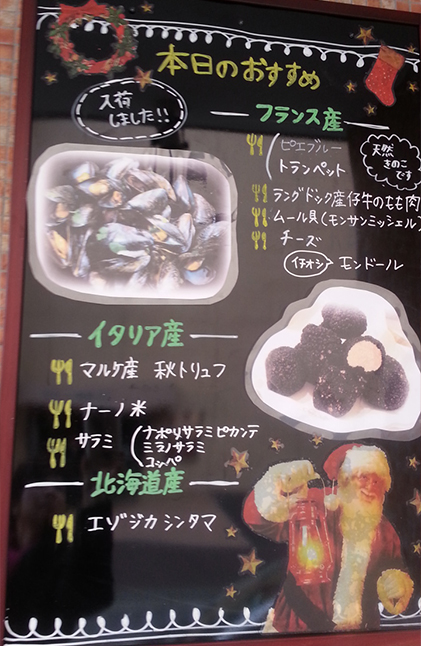 本日のおすすめ
入荷
しました!!
フランス産
ピエブルー
トランペット
天然
きのこ
です
ラングドック産仔牛のもも肉
ムール貝(モンサンミッシェル)
チーズ
イチオシ モンドール
イタリア産
マルケ産 秋トリュフ
ナーノ米
サラミ
ナポリサラミピカンテ
ミラノサラミ
コッパ
北海道産
エゾジカシンタマ